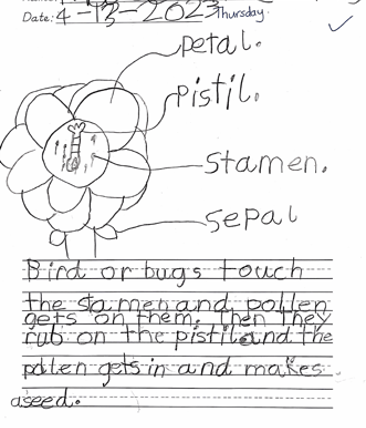 Date: 4-13-2023 Thursday
petal.
pistil.
stamen.
sepal
Bird or bugs touch
the stamen and pollen
gets on them. Then they
rub on the pistil and the
pollen gets in and makes
a seed.